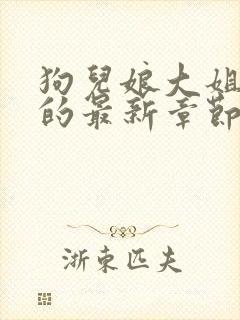 狗兒娘大姐
的最新章節
浙東匹夫